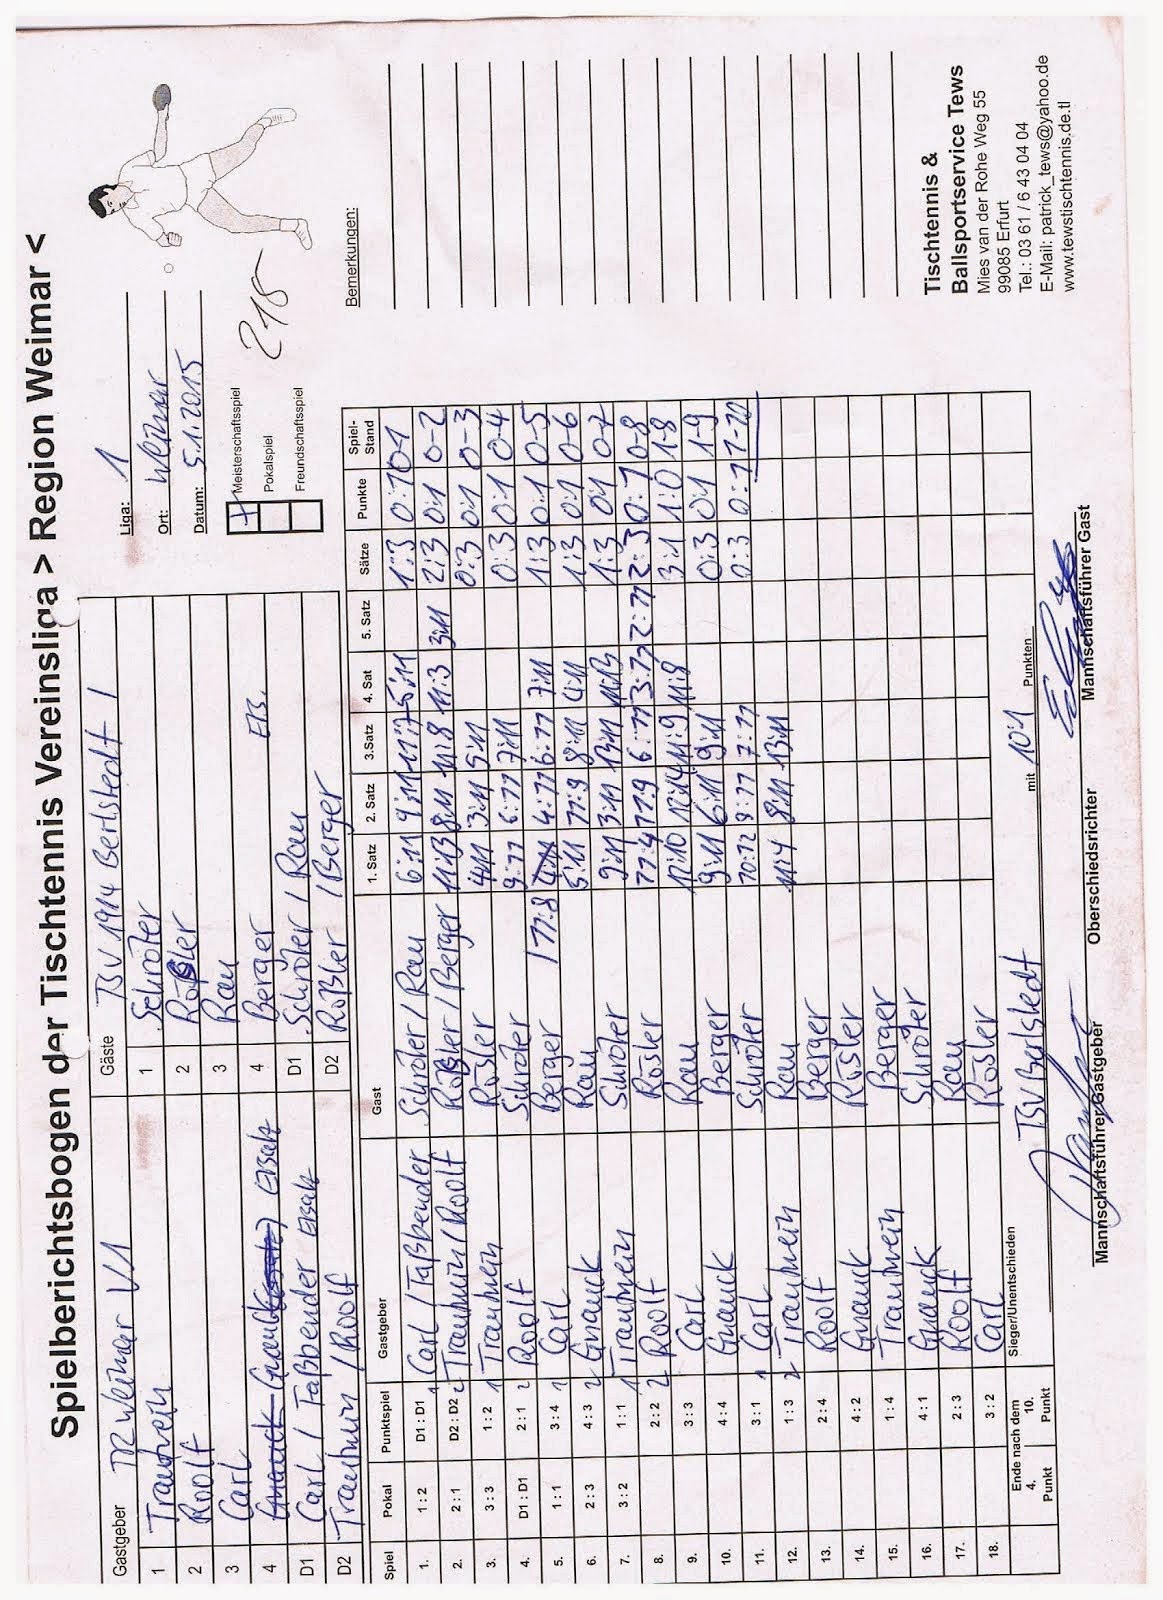 Spielberichtsbogen der Tischtennis Vereinsliga > Region Weimar <
Gastgeber TTZ Weimar VI Gäste TSV 1914 Berlstedt I
1 Trauhein 1 Schröter
2 Roolf 2 Rößler
3 Carl 3 Rau
4 Gnauck Ersatz 4 Berger Ers.
D1 Carl / Taßbender Ersatz D1 Schröter / Rau
D2 Trauhein / Roolf D2 Rößler / Berger
Liga: 1
Ort: Weimar
Datum: 5.1.2015
Meisterschaftsspiel
Pokalspiel
Freundschaftsspiel
218
Spiel Pokal Punktspiel Gastgeber Gast 1. Satz 2. Satz 3.Satz 4. Sat 5. Satz Sätze Punkte Spiel-Stand
1. 1 : 2 D1 : D1 1 Carl / Taßbender Schröter / Rau 6:11 9:11 11:7 5:11 1:3 0:1 0-1
2. 2 : 1 D2 : D2 2 Trauhein / Roolf Rößler / Berger 11:13 8:11 11:8 11:3 3:11 2:3 0:1 0-2
3. 3 : 3 1 : 2 1 Trauhein Rösler 4:11 3:11 5:11 0:3 0:1 0-3
4. D1 : D1 2 : 1 2 Roolf Schröter 9:11 6:11 7:11 0:3 0:1 0-4
5. 1 : 1 3 : 4 1 Carl Berger 11:8 4:11 4:11 6:11 7:11 1:3 0:1 0-5
6. 2 : 3 4 : 3 2 Gnauck Rau 5:11 11:9 8:11 4:11 1:3 0:1 0-6
7. 3 : 2 1 : 1 1 Trauhein Schröter 9:11 3:11 13:11 11:13 1:3 0:1 0-7
8. 2 : 2 2 Roolf Rösler 11:4 11:9 6:11 3:11 2:11 2:3 0:1 0-8
9. 3 : 3 Carl Rau 12:10 12:14 11:9 11:8 3:1 1:0 1-8
10. 4 : 4 Gnauck Berger 9:11 6:11 9:11 0:3 0:1 1-9
11. 3 : 1 1 Carl Schröter 10:12 9:11 7:11 0:3 0-1 1-10
12. 1 : 3 2 Trauhein Rau 11:4 8:11 13:11
13. 2 : 4 Roolf Berger
14. 4 : 2 Gnauck Rösler
15. 1 : 4 Trauhein Berger
16. 4 : 1 Gnauck Schröter
17. 2 : 3 Roolf Rau
18. 3 : 2 Carl Rösler
Ende nach dem
4. Punkt 10. Punkt
Sieger/Unentschieden TSV Berlstedt mit 10:1 Punkten
Mannschaftsführer Gastgeber Oberschiedsrichter Mannschaftsführer Gast
Bemerkungen:
Tischtennis &
Ballsportservice Tews
Mies van der Rohe Weg 55
99085 Erfurt
Tel.: 03 61 / 6 43 04 04
E-Mail: patrick_tews@yahoo.de
www.tewstischtennis.de.tl